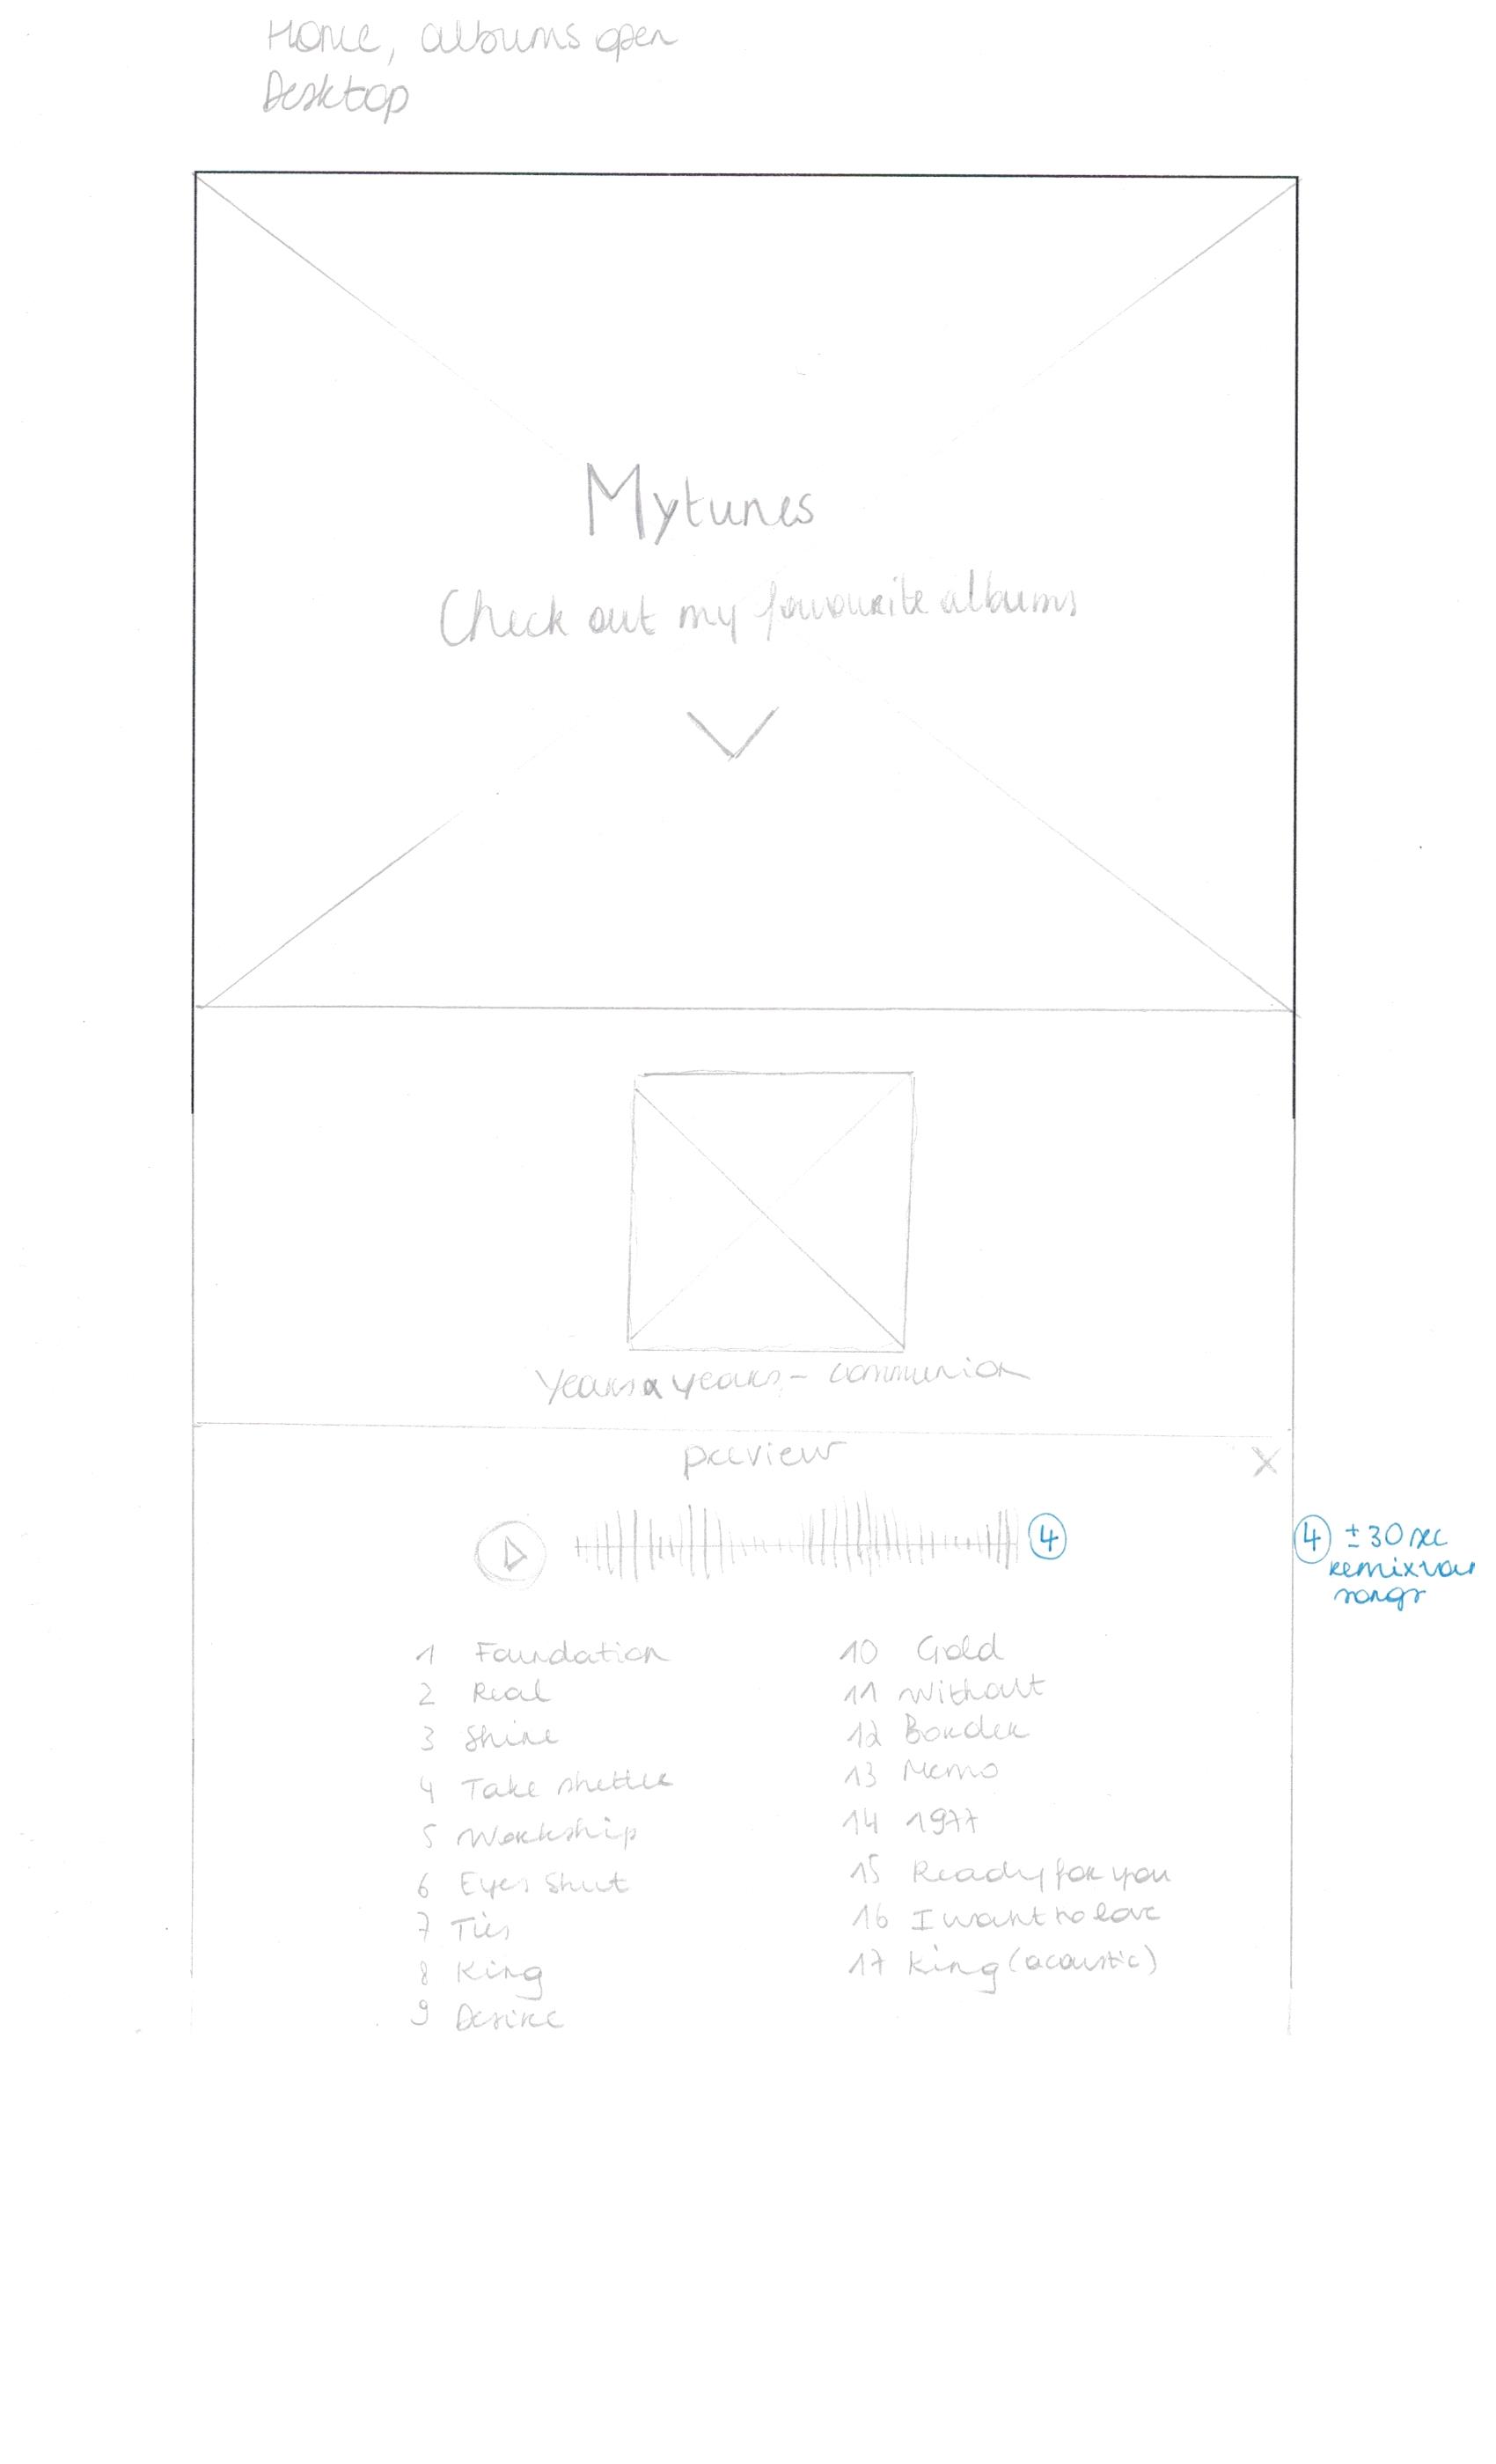 Home, albums open
Desktop
Mytunes
Check out my favourite albums
Years & years - communion
preview
X
4
4 ±30 sec
remix van
songs
1 Foundation
2 Real
3 Shine
4 Take shelter
5 Workship
6 Eyes Shut
7 Ties
8 King
9 Desire
10 Gold
11 Without
12 Border
13 Memo
14 1977
15 Ready for you
16 I want to love
17 King (acoustic)